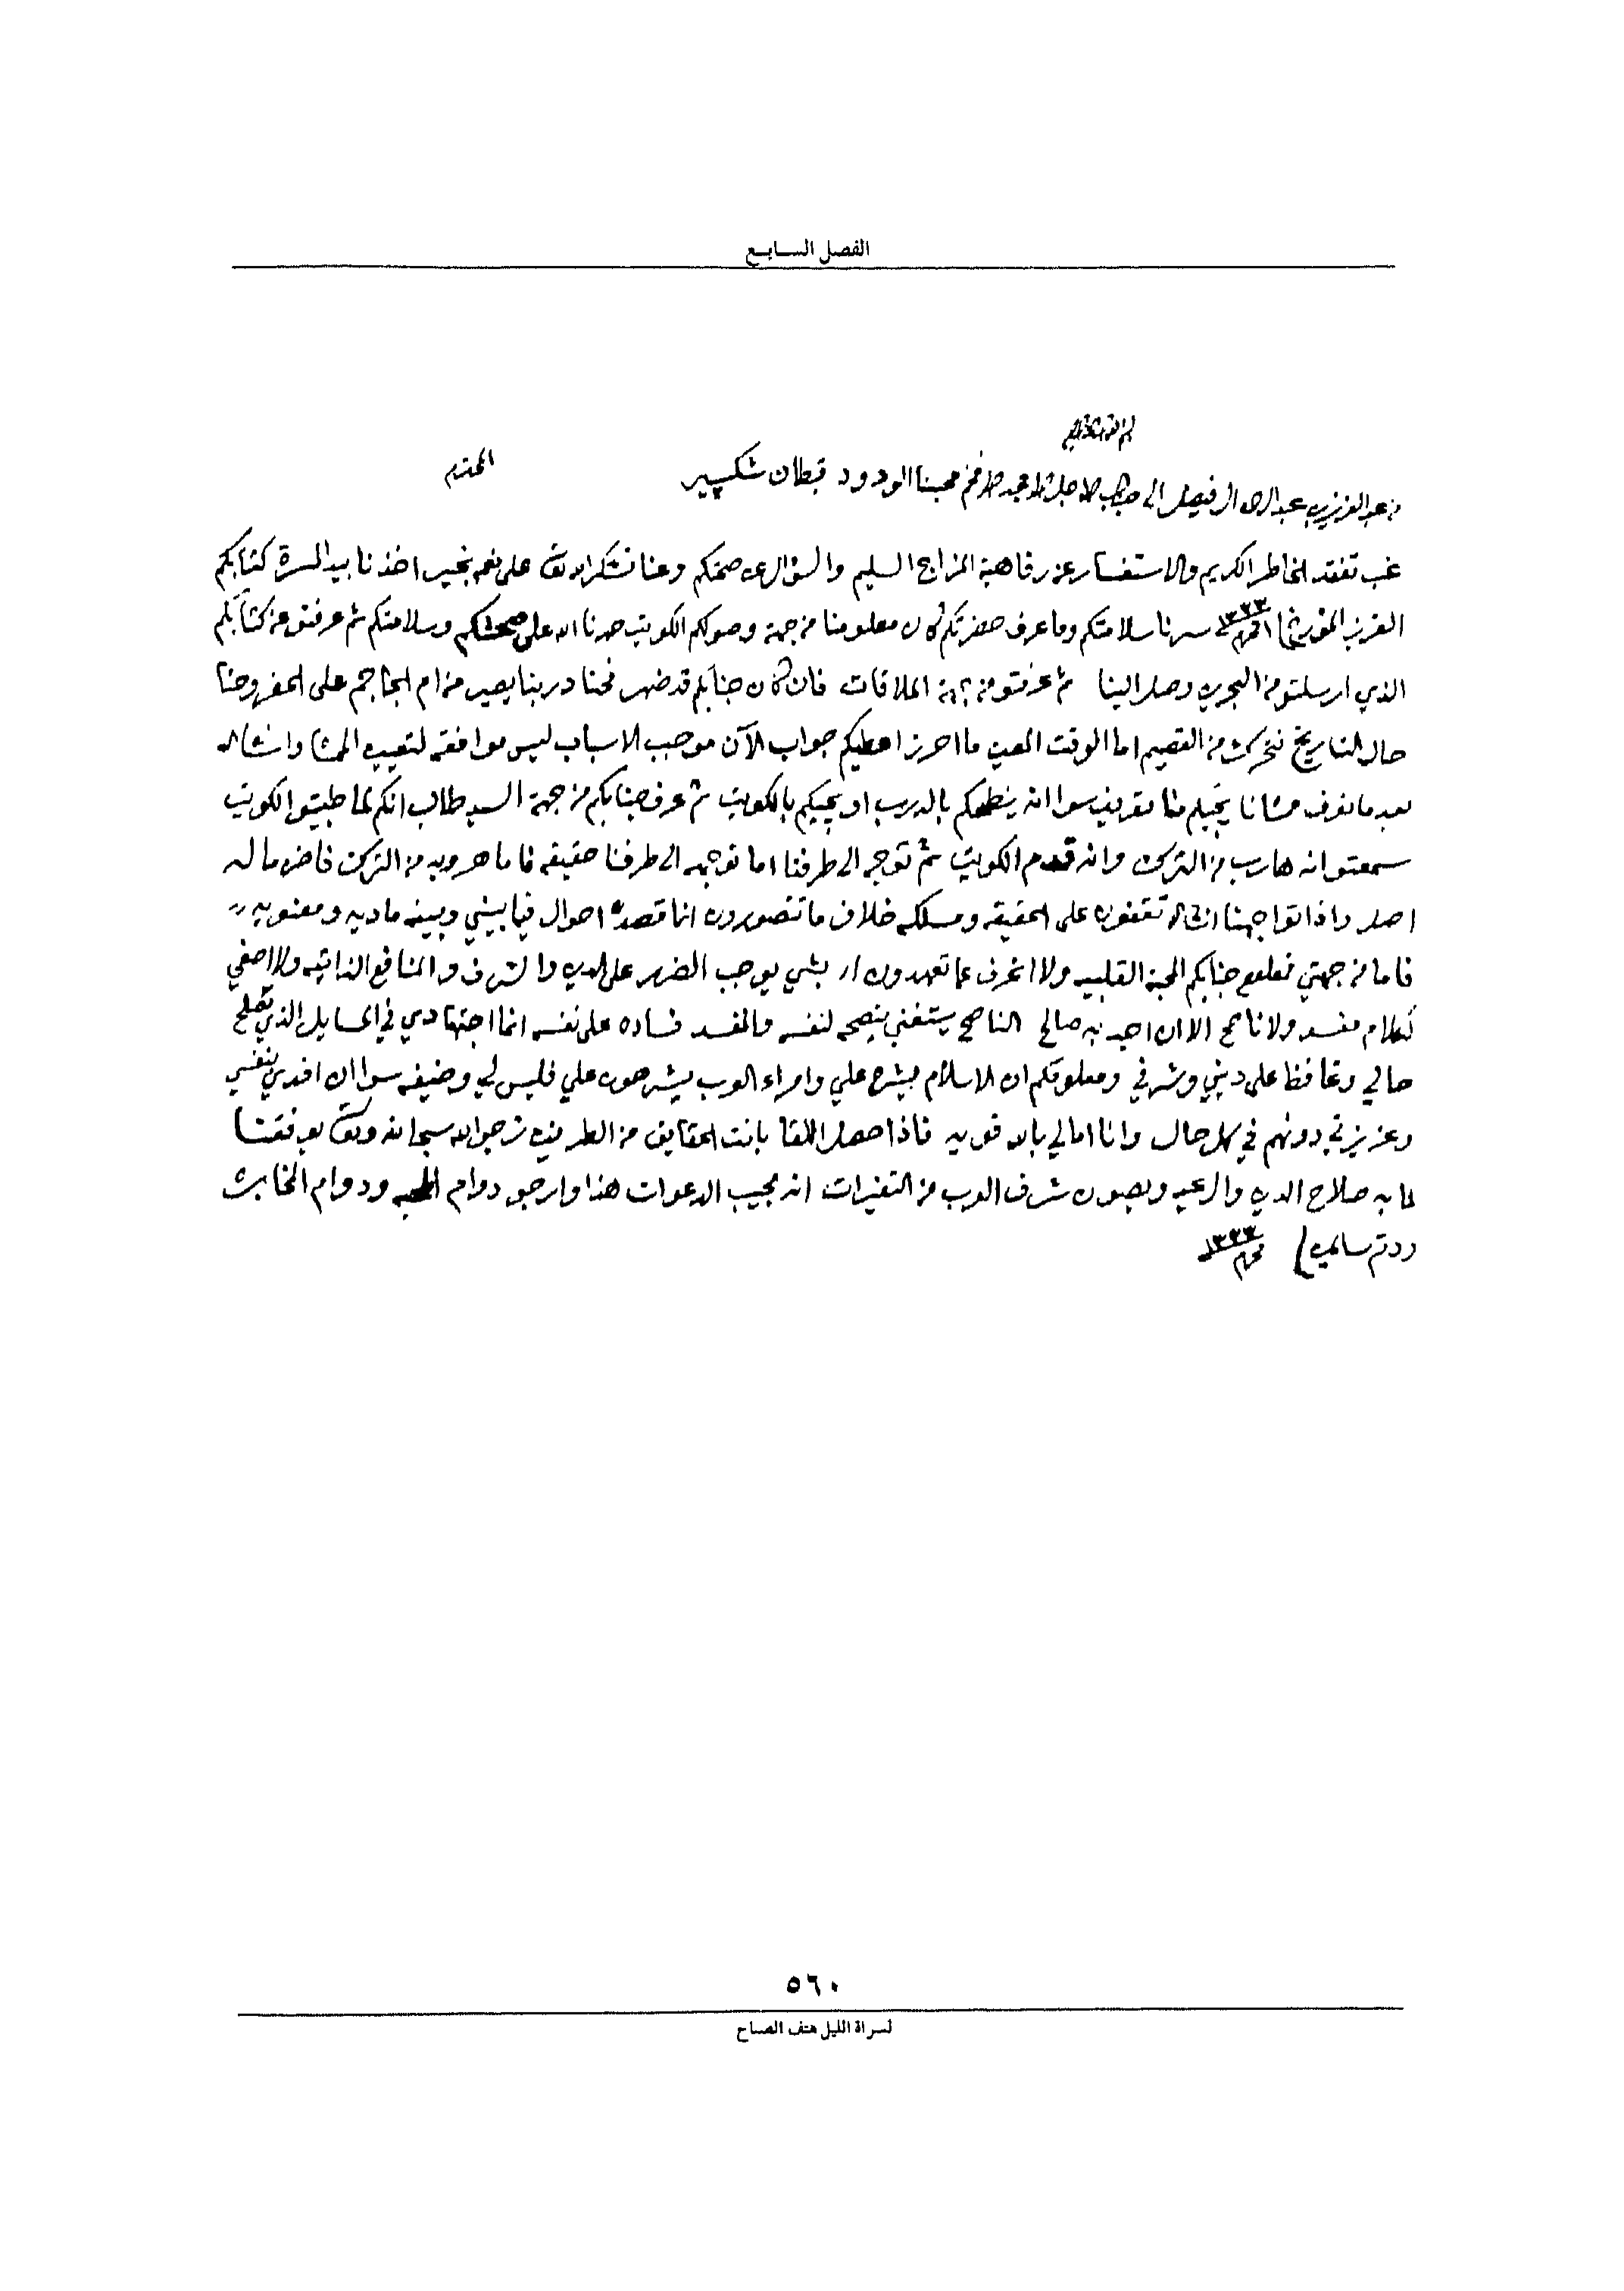 الفصل السابع
من عبد العزيز بن عبد الرحمن ال فيصل الى جناب الاجل الامجد الافخم محبنا الودود قبطان شكسبير المحترم
غب تفقد الخاطر الكريم والاستفسار عن رفاهية المزاج السليم والسؤال عن صحتكم وعنا نشكر الله تعالى على نعمه بخير اخذنا بيد المسرة كتابكم
العزيز المؤرخ ١٣٣٣ سرنا سلامتكم وما عرف حضرتكم كان معلومنا من جهة وصولكم الكويت حمدنا الله على صحتكم وسلامتكم ثم عرفتو عن كتابكم
الذي ارسلتو من البحرين وصل الينا ثم عرفتو من جهة الملاقات فان كان جنابكم قد ضهر فحنا دربنا يصير من ام الجاجم على الحفر وحنا
حال التاريخ نتحرك من القصيم اما الوقت المعين ما احرز اعطيكم جواب الآن موجب الاسباب ليس موافقه لتعيين المشا وانشالله
بعد ما نعرف ممشانا يجيكم منا تعريف سوا انه ينطحكم بالدرب او يجيكم بالكويت ثم عرف جنابكم من جهة السيد طالب انكم لما طبيتو الكويت
سمعتو انه هارب من الترك وانه قدم الكويت ثم توجه الى طرفنا اما توجهه الى طرفنا حقيقه فاما هروبه من الترك فاضن ما له
اصل واذا تواجهنا انشالله تقفون على الحقيقه ومسلكه خلاف ما تتصورون انما قصده احوال فيما بيني وبينه ماديه ومعنويه
فاما من جهتي فمعلوم جنابكم المحبة القلبيه ولا انحرف عما تعهدون الا بشي يوجب الضرر على الدين والشرف والمنافع الذاتيه ولا اصغي
لكلام مفسد ولا ناصح الا ان اجد به صالح الناصح يستغني بنصحه لنفسه والمفسد فساده على نفسه انما اجتهادي في المسايل الذي تصلح
حالي وتحافظ على ديني وشرفي ومعلومكم ان الاسلام يشرح علي وامراء العرب يشرحون علي فليس لي وضيفه سوا ان افدي بنفسي
وعزيزتي دونهم في كل حال وانا امالي بالله قويه فاذا حصل اللقا بانت الحقايق من الطرفين نرجو الله سبحانه وتعالى يوفقنا
لما به صلاح الدين والرعيه ويصون شرف العرب من التغيرات انه مجيب الدعوات هذا وارجو دوام المحبه ودوام المخابره
ودتم سالمين محرم ١٣٣٣
٥٦٠
لسراة الليل هتف الصباح